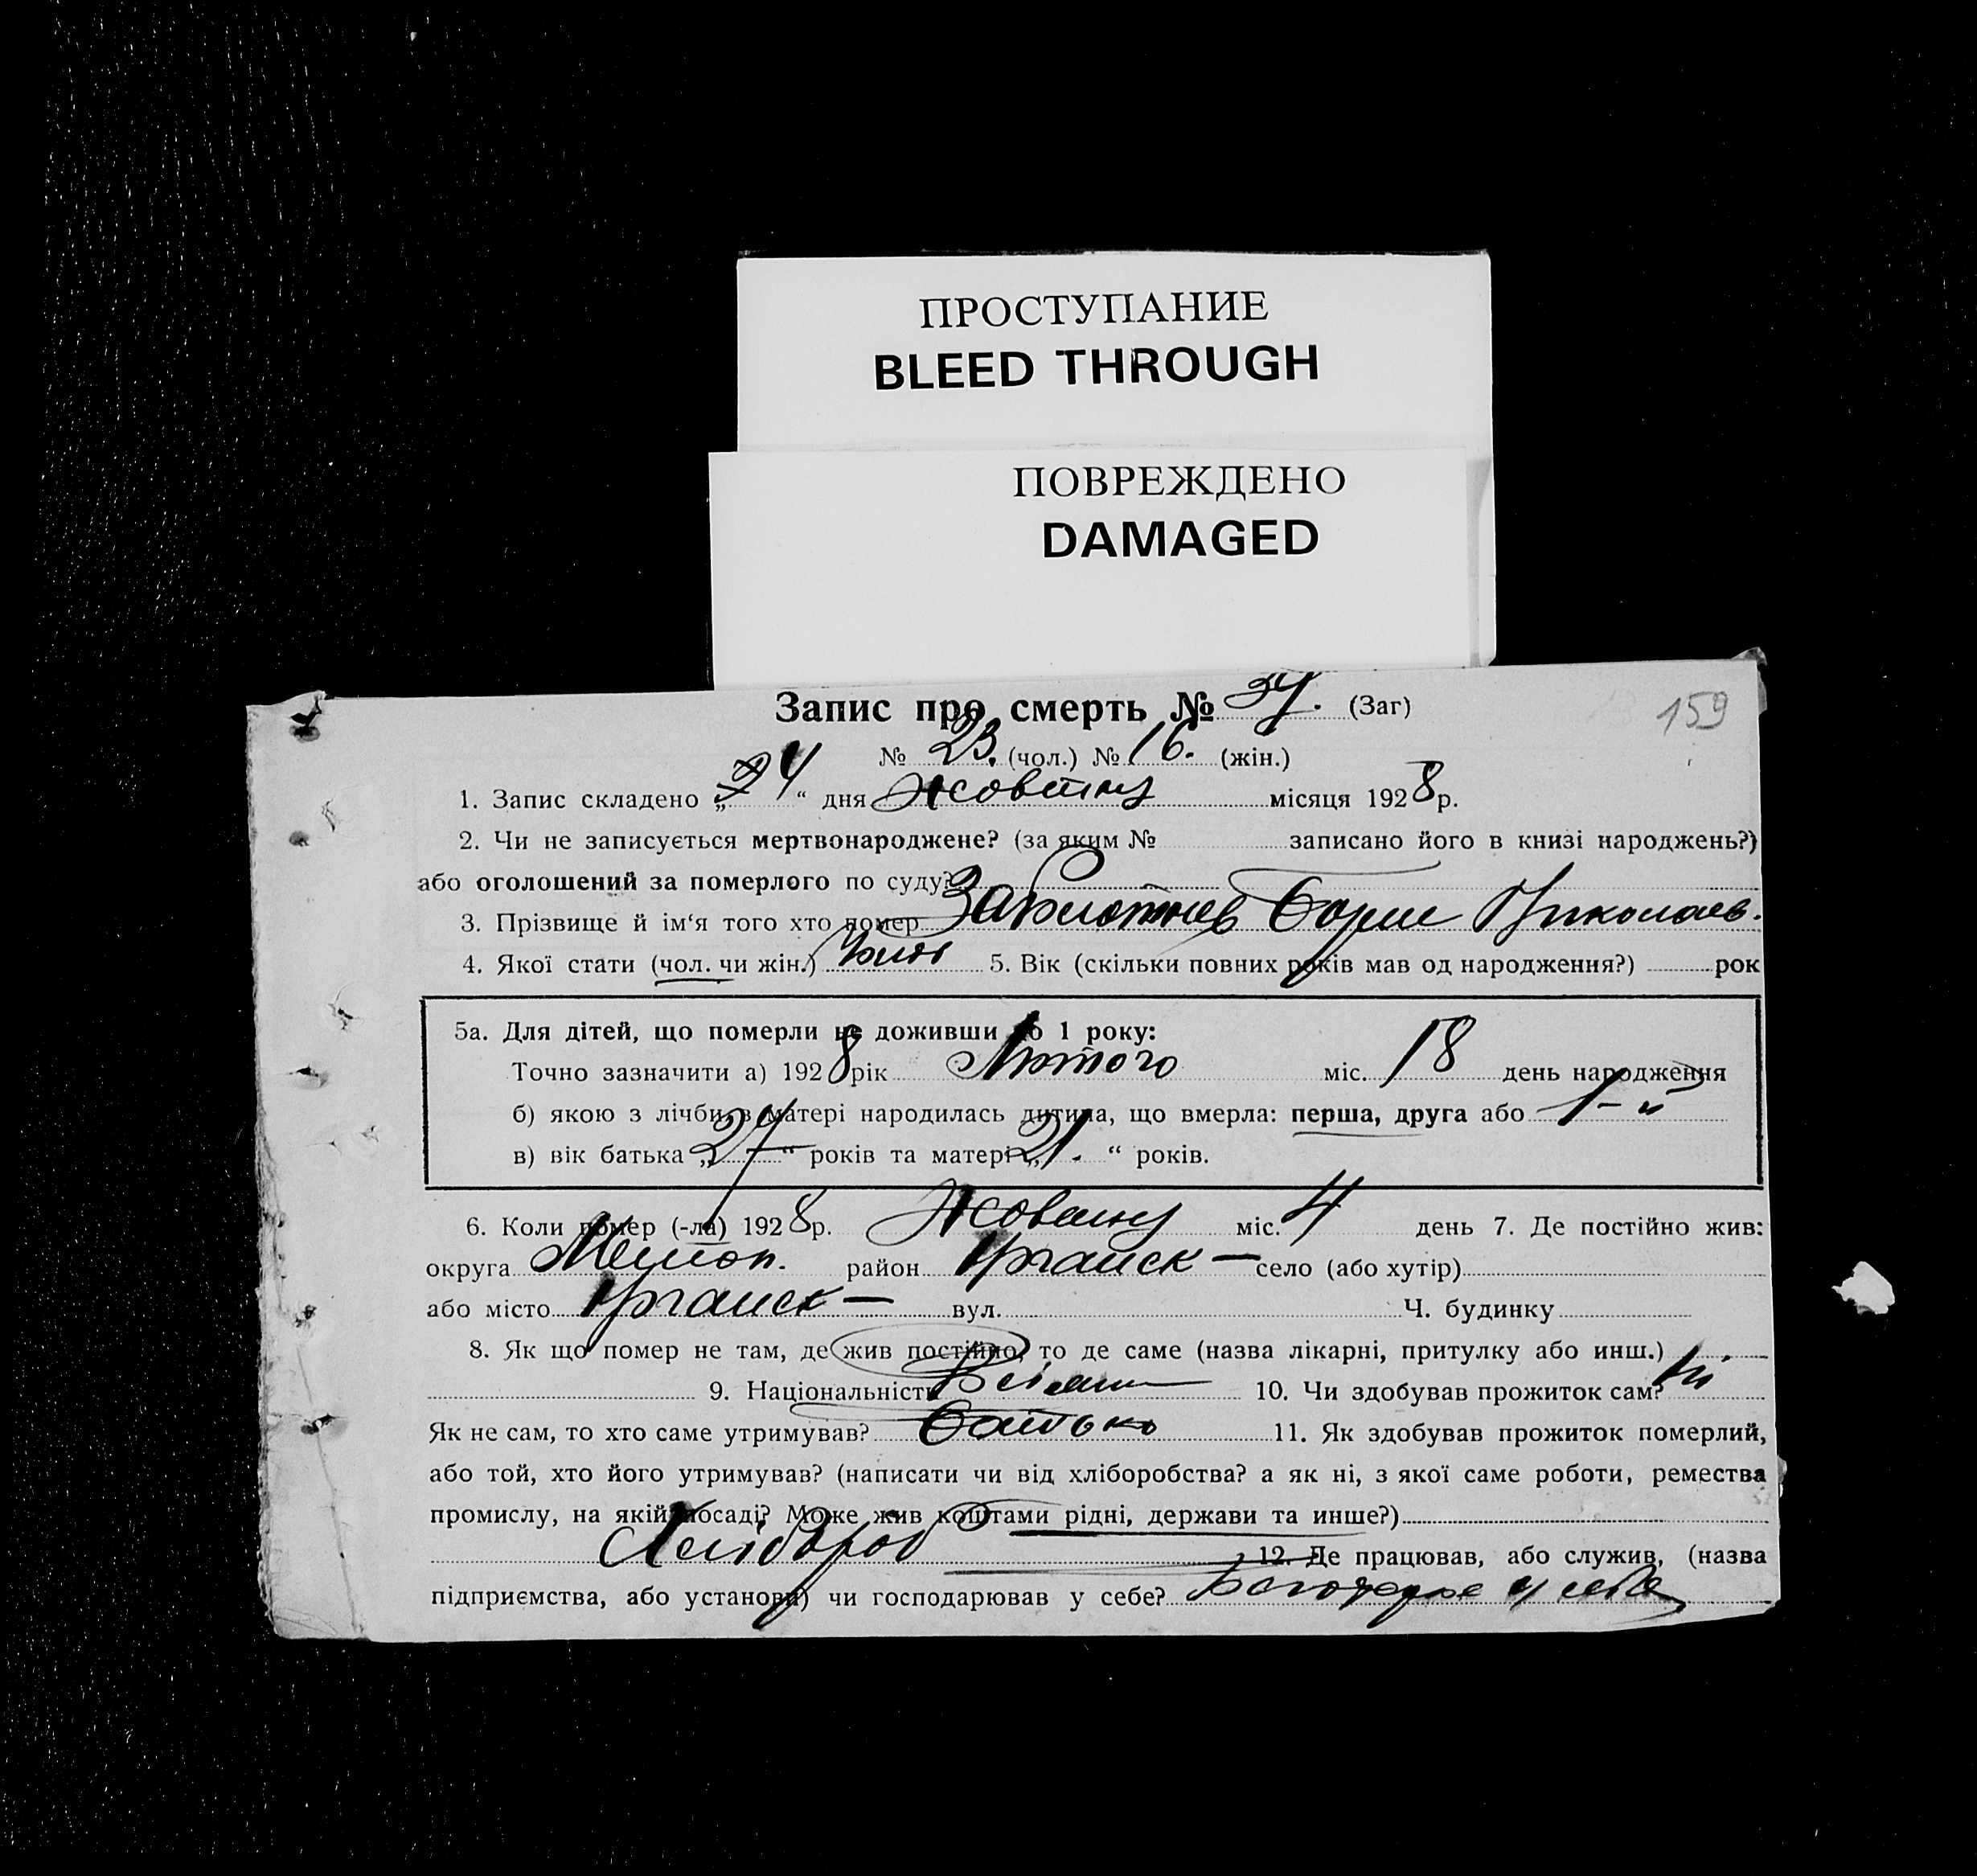 ПРОСТУПАНИЕ
BLEED THROUGH
ПОВРЕЖДЕНО
DAMAGED
159
Запис про смерть № (Заг)
№ 23. (чол.) № 16. (жін.)
1. Запис складено „ 4 “ дня Жовтня місяця 1928 р.
2. Чи не записується мертвонароджене? (за яким № записано його в книзі народжень?)
або оголошений за померлого по суду?
3. Прізвище й ім'я того хто помер Борис Николаев.
4. Якої стати (чол. чи жін.) 5. Вік (скільки повних років мав од народження?) рок
5а. Для дітей, що померли не доживши до 1 року:
Точно зазначити а) 1928 рік Лютого міс. 18 день народження
б) якою з лічби в матері народилась дитина, що вмерла: перша, друга або 1-й
в) вік батька „ 27 “ років та матері „ 21. “ років.
6. Коли помер (-ла) 1928 р. Жовтня міс. 4 день 7. Де постійно жив:
округа район село (або хутір)
або місто вул. Ч. будинку
8. Як що помер не там, де жив постійно, то де саме (назва лікарні, притулку або инш.)
9. Національність 10. Чи здобував прожиток сам? ні
Як не сам, то хто саме утримував? Батько 11. Як здобував прожиток померлий,
або той, хто його утримував? (написати чи від хліборобства? а як ні, з якої саме роботи, ремества
промислу, на якій посаді? Може жив коштами рідні, держави та инше?)
Хлібороб 12. Де працював, або служив, (назва
підприємства, або установи) чи господарював у себе? у себе